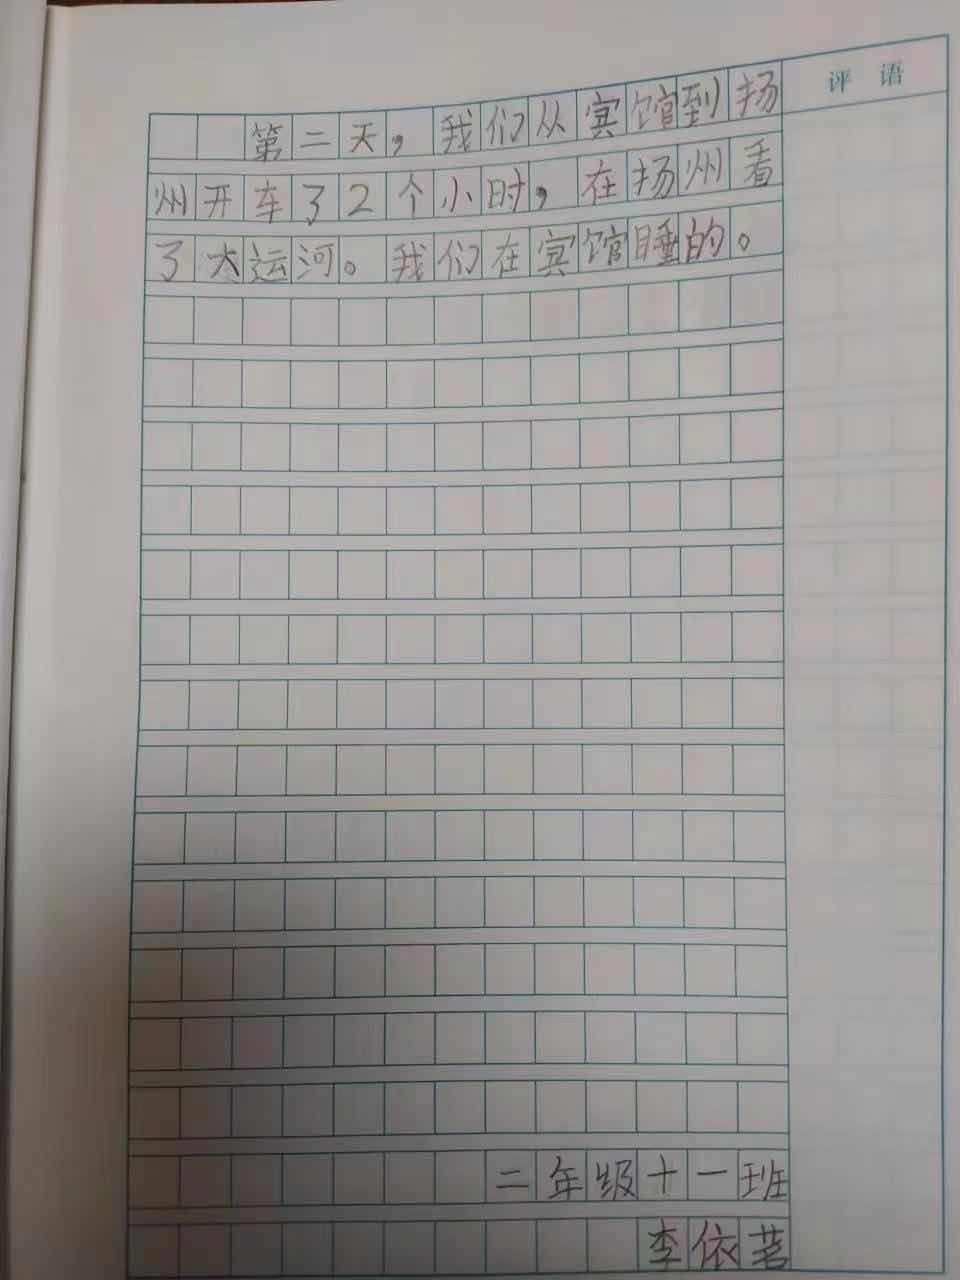 评语
第二天，我们从宾馆到扬
州开车了2个小时，在扬州看
了大运河。我们在宾馆睡的。
二年级十一班
李依茗